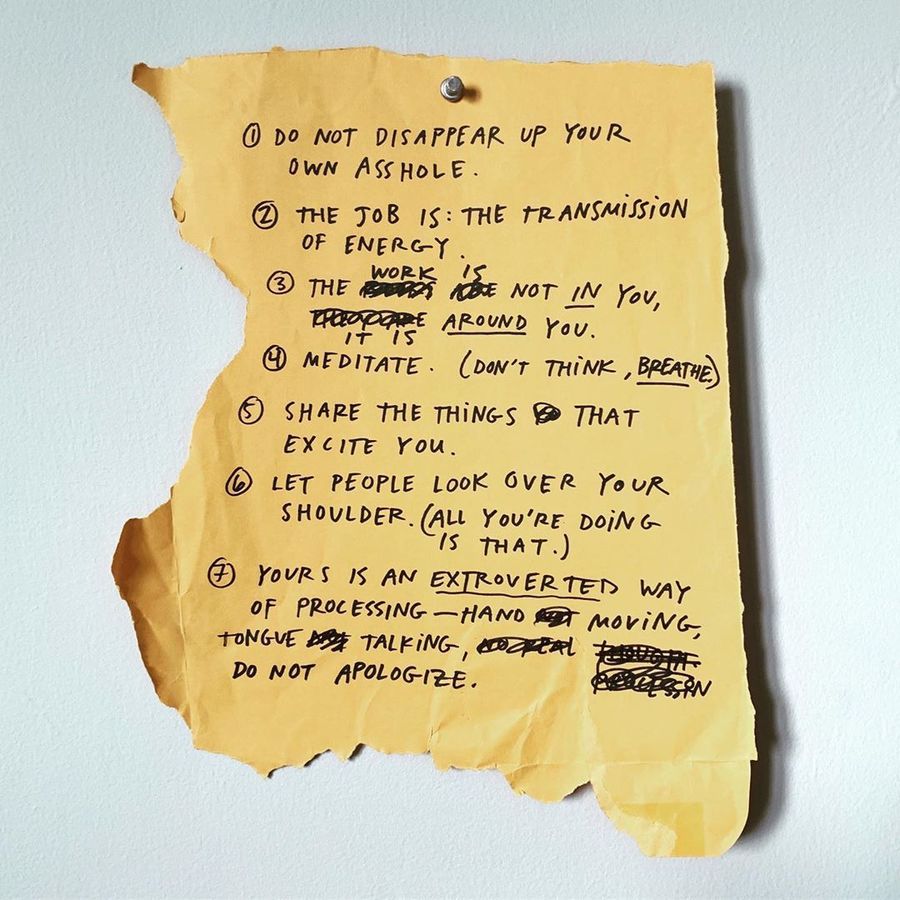 ① DO NOT DISAPPEAR UP YOUR
OWN ASSHOLE.
② THE JOB IS: THE TRANSMISSION
OF ENERGY.
WORK IS
③ THE NOT IN YOU,
AROUND YOU.
IT IS
④ MEDITATE. (DON'T THINK, BREATHE.)
⑤ SHARE THE THINGS THAT
EXCITE YOU.
⑥ LET PEOPLE LOOK OVER YOUR
SHOULDER. (ALL YOU'RE DOING
IS THAT.)
⑦ YOURS IS AN EXTROVERTED WAY
OF PROCESSING—HAND MOVING,
TONGUE TALKING,
DO NOT APOLOGIZE.